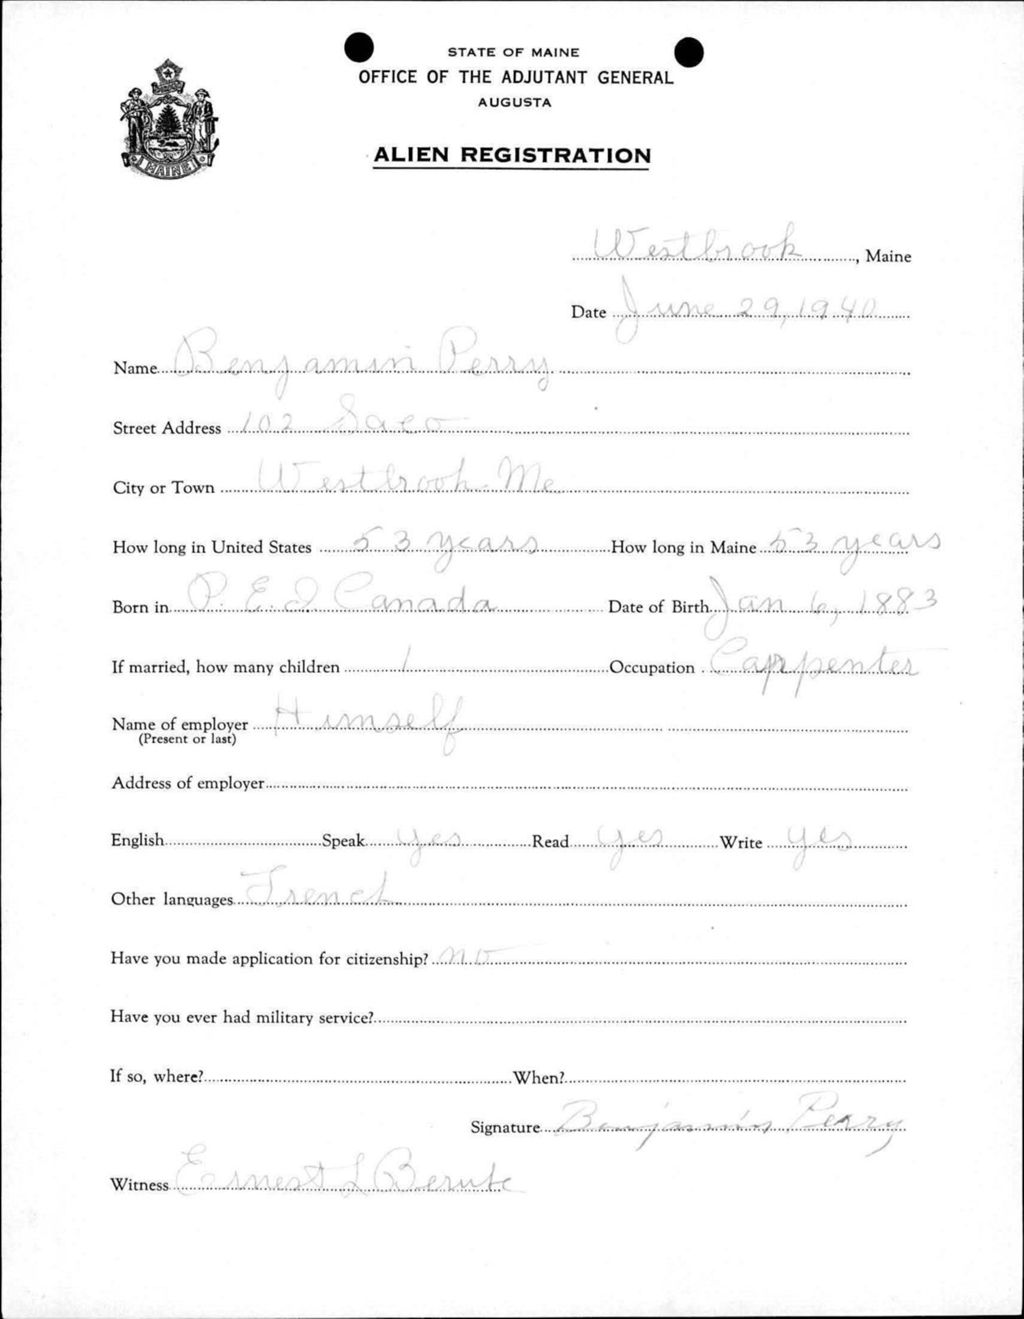 STATE OF MAINE
OFFICE OF THE ADJUTANT GENERAL
AUGUSTA
ALIEN REGISTRATION
MAINE
Westbrook, Maine
Date June 29, 1940
Name Benjamin Perry
Street Address 102 Saco
City or Town Westbrook Me
How long in United States 53 years How long in Maine 53 years
Born in P. E. I Canada Date of Birth Jan 6, 1883
If married, how many children 1 Occupation Carpenter
Name of employer Himself
(Present or last)
Address of employer
English Speak yes Read yes Write yes
Other languages French
Have you made application for citizenship? no
Have you ever had military service?
If so, where? When?
Signature Benjamin Perry
Witness Ernest L